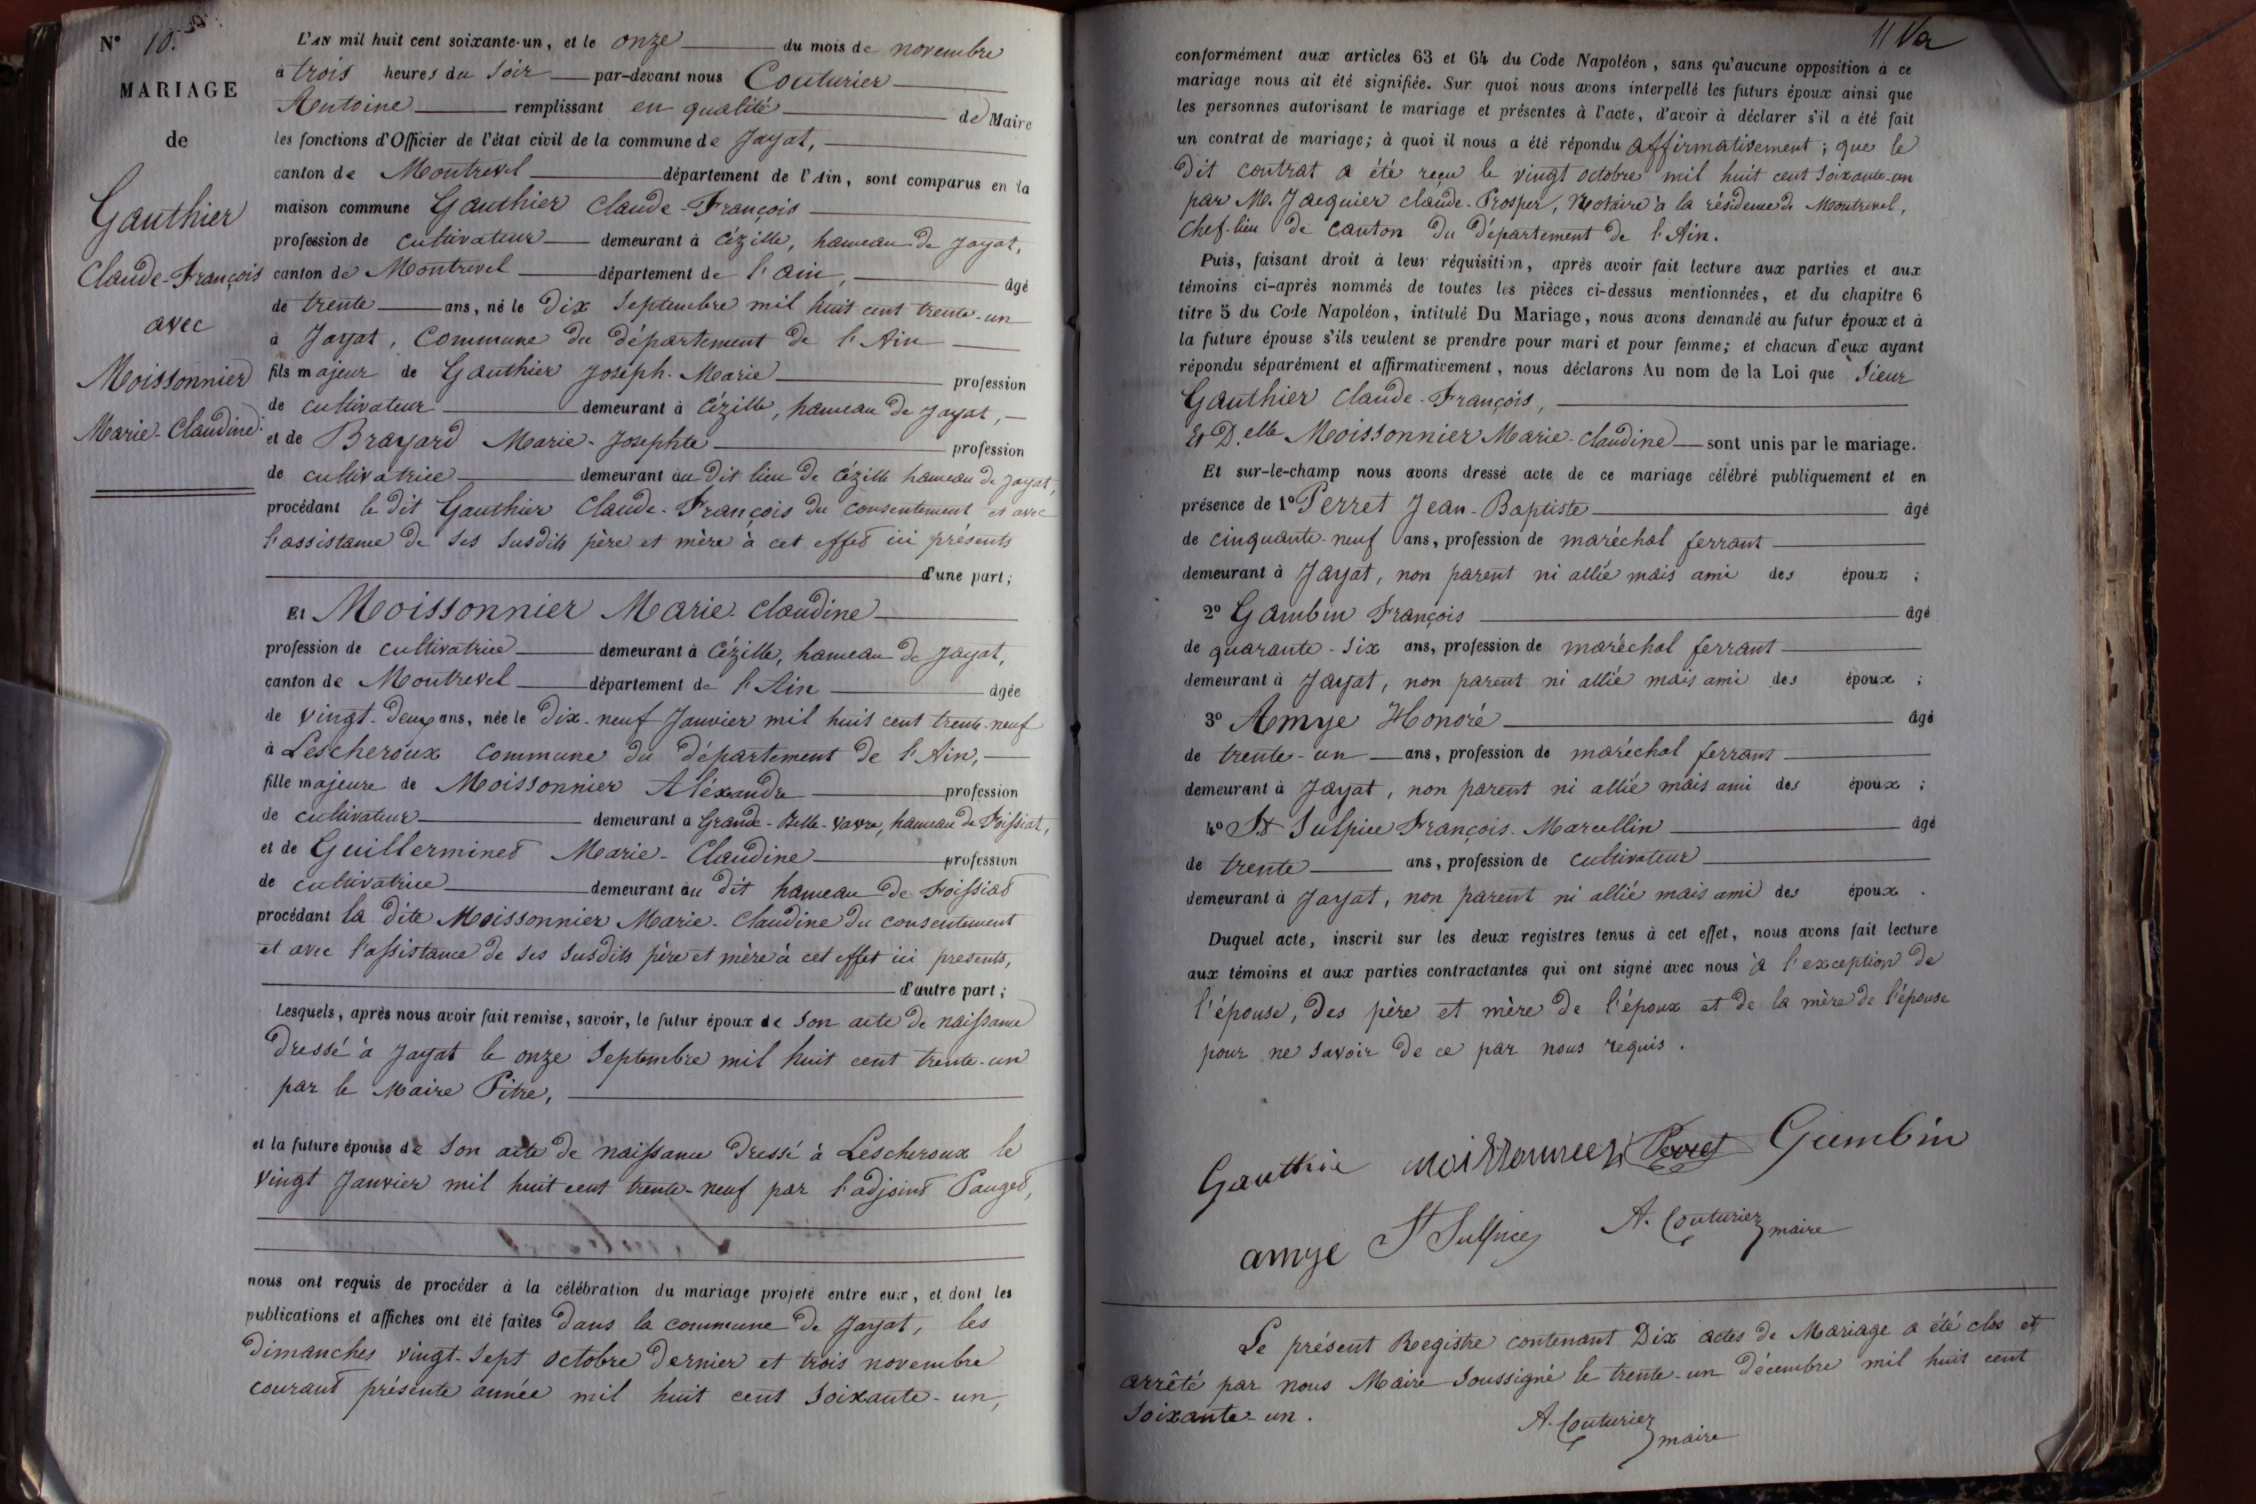 N° 10.
MARIAGE
de
Gauthier
Claude-François
avec
Moissonnier
Marie-Claudine.
L'AN mil huit cent soixante-un, et le onze du mois de novembre
à trois heures du soir par-devant nous Couturier
Antoine remplissant en qualité de Maire
les fonctions d'Officier de l'état civil de la commune de Jayat,
canton de Montrevel département de l'Ain, sont comparus en la
maison commune Gauthier Claude-François
profession de cultivateur demeurant à Cézille, hameau de Jayat,
canton de Montrevel département de l'ain, âgé
de trente ans, né le dix septembre mil huit cent trente-un
à Jayat, Commune du département de l'Ain
fils majeur de Gauthier Joseph-Marie profession
de cultivateur demeurant à Cézille, hameau de Jayat,
et de Brayard Marie-Josephte profession
de cultivatrice demeurant au dit lieu de Cézille hameau de Jayat,
procédant le dit Gauthier Claude-François du consentement et avec
l'assistance de ses susdits père et mère à cet effet ici présents
d'une part;
Et Moissonnier Marie-Claudine
profession de cultivatrice demeurant à Cézille, hameau de Jayat,
canton de Montrevel département de l'Ain âgée
de vingt-deux ans, née le dix-neuf Janvier mil huit cent trente-neuf
à Lescheroux commune du département de l'Ain,
fille majeure de Moissonnier Aléxandre profession
de cultivateur demeurant à Grande-Belle-Vavre, hameau de Foissiat,
et de Guillerminet Marie-Claudine profession
de cultivatrice demeurant au dit hameau de Foissiat
procédant la dite Moissonnier Marie-Claudine du consentement
et avec l'assistance de ses susdits père et mère à cet effet ici presents,
d'autre part;
Lesquels, après nous avoir fait remise, savoir, le futur époux de son acte de naissance
dressé à Jayat le onze septembre mil huit cent trente-un
par le Maire Pitre,
et la future épouse de son acte de naissance dressé à Lescheroux le
vingt Janvier mil huit cent trente-neuf par l'adjoint Pauget,
nous ont requis de procéder à la célébration du mariage projeté entre eux, et dont les
publications et affiches ont été faites dans la commune de Jayat, les
dimanches vingt-sept octobre dernier et trois novembre
courant présente année mil huit cent soixante-un,
11
conformément aux articles 63 et 64 du Code Napoléon, sans qu'aucune opposition à ce
mariage nous ait été signifiée. Sur quoi nous avons interpellé les futurs époux ainsi que
les personnes autorisant le mariage et présentes à l'acte, d'avoir à déclarer s'il a été fait
un contrat de mariage; à quoi il nous a été répondu affirmativement; que le
dit contrat a été reçu le vingt octobre mil huit cent soixante-un
par M. Jacquier Claude-Prosper, Notaire à la résidence de Montrevel,
chef-lieu de canton du département de l'Ain.
Puis, faisant droit à leur réquisition, après avoir fait lecture aux parties et aux
témoins ci-après nommés de toutes les pièces ci-dessus mentionnées, et du chapitre 6
titre 5 du Code Napoléon, intitulé Du Mariage, nous avons demandé au futur époux et à
la future épouse s'ils veulent se prendre pour mari et pour femme; et chacun d'eux ayant
répondu séparément et affirmativement, nous déclarons Au nom de la Loi que Sieur
Gauthier Claude-François,
Et D.elle Moissonnier Marie-Claudine sont unis par le mariage.
Et sur-le-champ nous avons dressé acte de ce mariage célébré publiquement et en
présence de 1° Perret Jean-Baptiste âgé
de cinquante-neuf ans, profession de maréchal ferrant
demeurant à Jayat, non parent ni allié mais ami des époux ;
2° Gambin François âgé
de quarante-six ans, profession de maréchal ferrant
demeurant à Jayat, non parent ni allié mais ami des époux ;
3° Amye Honoré âgé
de trente-un ans, profession de maréchal ferrant
demeurant à Jayat, non parent ni allié mais ami des époux ;
4° St Sulpice François-Marcellin âgé
de trente ans, profession de cultivateur
demeurant à Jayat, non parent ni allié mais ami des époux .
Duquel acte, inscrit sur les deux registres tenus à cet effet, nous avons fait lecture
aux témoins et aux parties contractantes qui ont signé avec nous à l'exception de
l'épouse, des père et mère de l'époux et de la mère de l'épouse
pour ne savoir de ce par nous requis.
Gauthie moissonnier Perret Gambin
amye St Sulpice A. Couturier maire
Le présent Registre contenant Dix actes de Mariage a été clos et
arrêté par nous Maire soussigné le trente-un décembre mil huit cent
soixante-un.
A. Couturier
maire